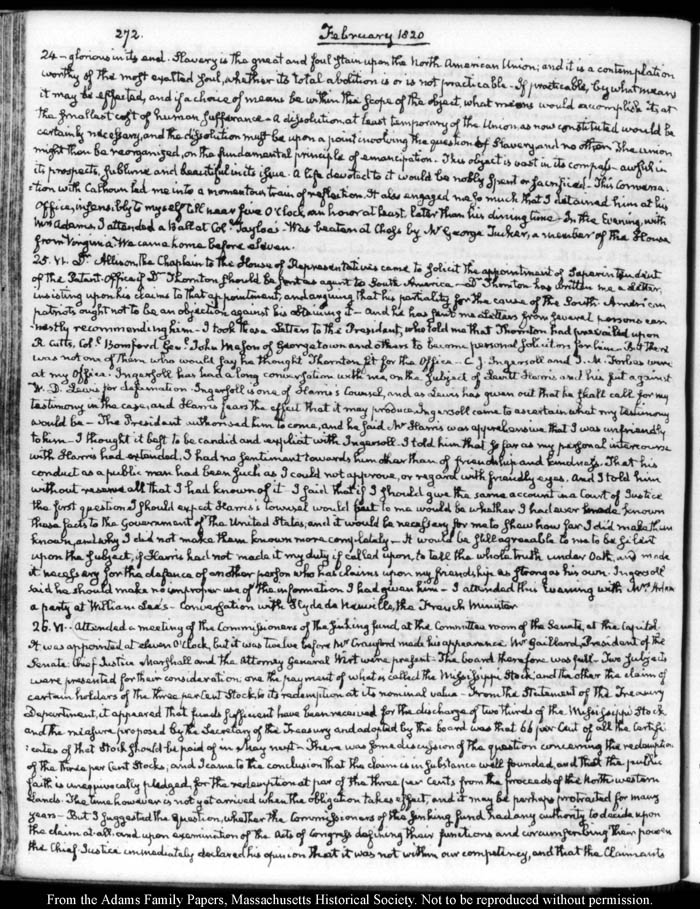 272. February 1820
24 – glorious in its end. Slavery is the great and foul stain upon the North American Union; and it is a contemplation
worthy of the most exalted soul, whether its total abolition is or is not practicable – If practicable, by what means
it may be effected, and if a choice of means be within the scope of the object, what means would accomplish it, at
the smallest cost of human sufferance – A dissolution, at least temporary of the Union as now constituted would be
certainly necessary, and the dissolution must be upon a point involving the question of Slavery and no other. The Union
might then be reorganized, on the fundamental principle of emancipation. This object is vast in its compass – awful in
its prospects, sublime and beautiful in its issue. A life devoted to it would be nobly spent or sacrificed – This conversa-
:tion with Calhoun led me into a momentous train of reflection. It also engaged me so much that I detained him at his
Office, insensibly to myself till near five O'Clock, an hour at least later than his dining time – In the Evening, with
Mrs Adams, I attended a Ball at Col. Tayloe's. Was beaten at Chess by Mr George Tucker, a member of the House
from Virginia. We came home before eleven.
25. VI. Dr Allison the Chaplain to the House of Representatives came to solicit the appointment of Superintendent
of the Patent Office if Dr Thornton should be sent as agent to South America – Dr Thornton has written me a Letter,
insisting upon his claims to that appointment, and arguing that his partiality for the cause of the South American
patriots ought not to be an objection against his obtaining it – And he has sent me Letters from several persons ear-
nestly recommending him – I took these Letters to the President, who told me that Thornton had prevailed upon
R. Cutts, Col. Bomford Genl. John Mason of Georgetown and others to become personal solicitors for him. But there
was not one of them who would say he thought Thornton fit for the Office – C. J. Ingersoll and J. M. Forbes were
at my Office. Ingersoll has had a long conversation with me, on the subject of Levitt Harris and his suit against
W. D. Lewis for defamation. Ingersoll is one of Harris's Counsel, and as Lewis has given out that he shall call for my
testimony in the case, and Harris fears the effect that it may produce Ingersoll came to ascertain what my testimony
would be – The President authorised him to come, and he said Mr Harris was apprehensive that I was unfriendly
to him – I thought it best to be candid and explicit with Ingersoll. I told him that so far as my personal intercourse
with Harris had extended, I had no sentiment towards him other than of friendship and kindness. That his
conduct as a public man had been such as I could not approve, or regard with friendly eyes. And I told him
without reserve all that I had known of it – I said that if I should give the same account in a Court of Justice
the first question I should expect Harris's Counsel would put to me would be whether I had ever made known
these facts to the Government of the United States, and it would be necessary for me to shew how far I did make them
known, and why I did not make them known more completely – It would be full agreeable to me to be silent
upon the subject, if Harris had not made it my duty if called upon, to tell the whole truth under Oath, and made
it necessary for the defence of another person who has claims upon my friendship as strong as his own. Ingersoll
said he should make no improper use of the information I had given him – I attended this Evening with Mrs Adams
a party at William Lee's – Conversation with Hyde de Neuville, the French Minister
26. VI. Attended a meeting of the Commissioners of the Sinking fund, at the Committee room of the Senate, at the Capitol.
It was appointed at eleven O'Clock, but it was twelve before Mr Crawford made his appearance. Mr Gaillard, President of the
Senate Chief Justice Marshall and the Attorney General Wirt were present. The board therefore was full – Two subjects
were presented for their consideration, one the payment of what is called the Mississippi Stock and the other the claim of
certain holders of the three per Cent Stock, to its redemption at its nominal value – From the Statement of the Treasury
Department, it appeared that funds sufficient have been received for the discharge of two thirds of the Mississippi Stock
and the measure proposed by the Secretary of the Treasury and adopted by the board was that 66 per Cent of all the Certifi
:cates of that Stock should be paid of in May next – There was some discussion of the question concerning the redemption
of the three per Cent Stocks, and I came to the conclusion that the claim is in substance well founded, and that the public
faith is unequivocally pledged, for the redemption at par of the three per Cents from the proceeds of the North western
Lands. The time however is not yet arrived when the obligation takes effect, and it may be perhaps protracted for many
years – But I suggested the question, whether the Commissioners of the Sinking Fund had any authority to decide upon
the claim at all. and upon examination of the Acts of Congress defining their functions and circumscribing their powers
the Chief Justice immediately declared his opinion that it was not within our competency, and that the Claimants
From the Adams Family Papers, Massachusetts Historical Society. Not to be reproduced without permission.